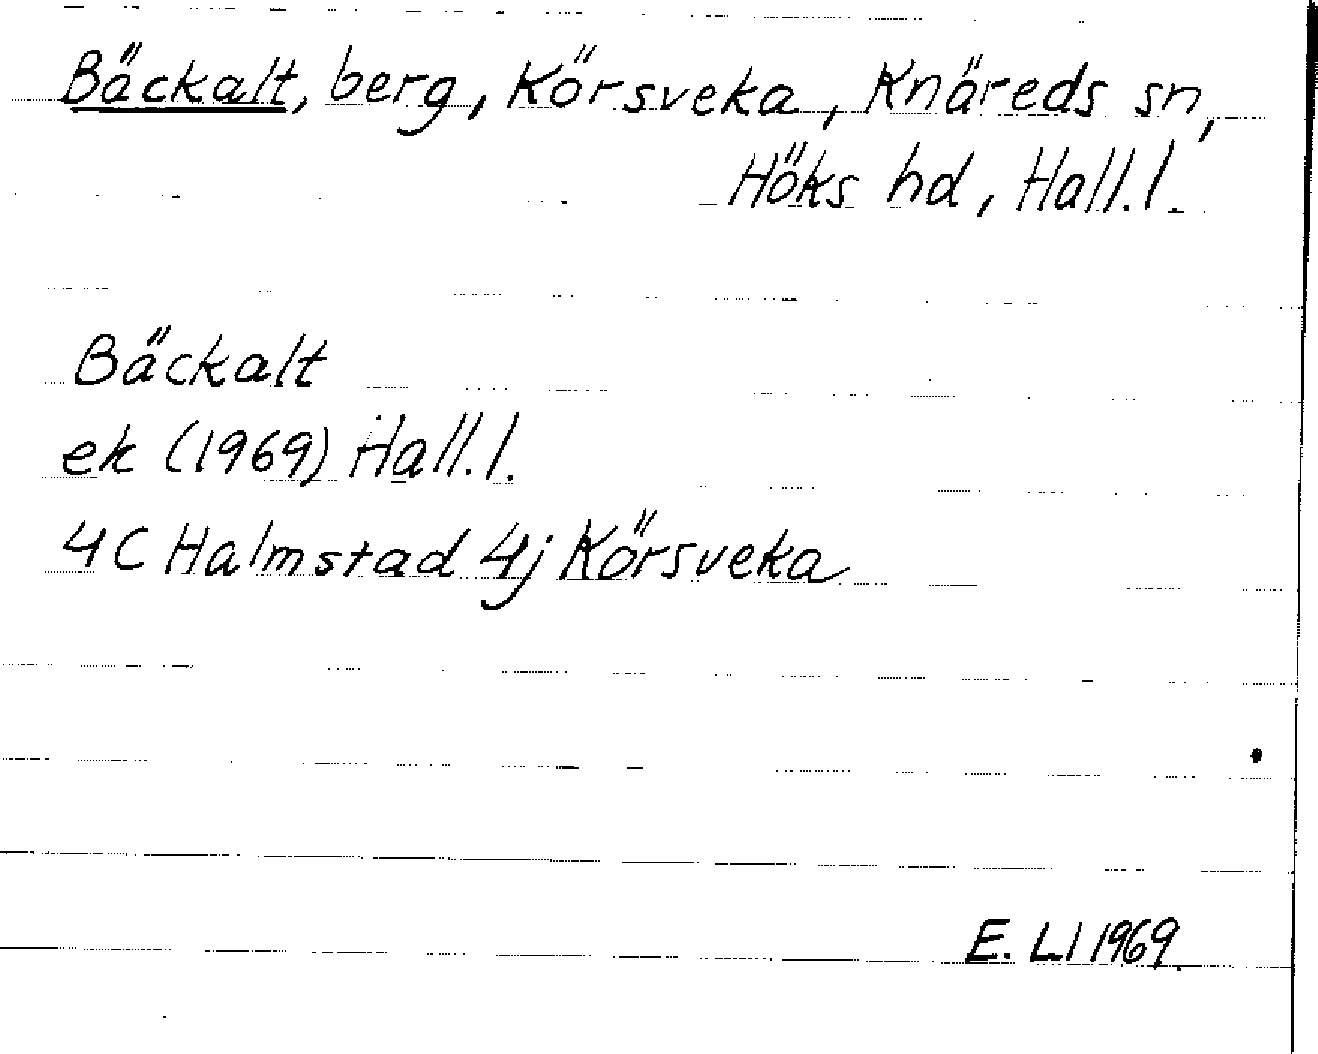 Bäckalt, berg, Körsveka, Knäreds sn,
Höks hd, Hall.l.
Bäckalt
ek (1969) Hall.l.
4C Halmstad 4j Körsveka
E. Ll 1969